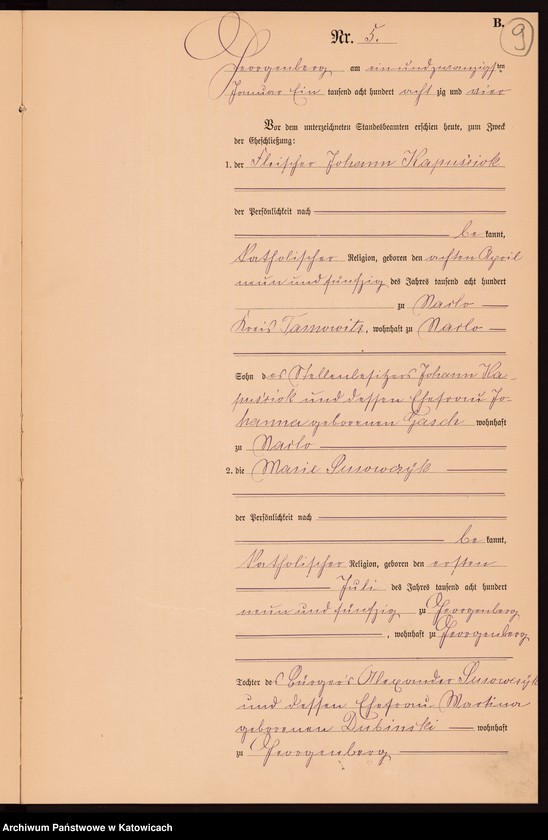 B.
9
Nr. 5.
Georgenberg am einundzwanzigsten
Januar Ein tausend acht hundert acht zig und vier
Vor dem unterzeichneten Standesbeamten erschien heute, zum Zweck
der Eheschließung:
1. der Fleischer Johann Kapuściok
der Persönlichkeit nach
be kannt,
katholischer Religion, geboren den achten April
neun und fünfzig des Jahres tausend acht hundert
zu Naklo
Kreis Tarnowitz, wohnhaft zu Naklo
Sohn des Stellenbesitzers Johann Ka-
puściok und dessen Ehefrau Jo-
hanna geborenen Gasch wohnhaft
zu Naklo
2. die Marie Susowczyk
der Persönlichkeit nach
be kannt,
katholischer Religion, geboren den ersten
Juli des Jahres tausend acht hundert
neun und fünfzig zu Georgenberg
, wohnhaft zu Georgenberg
Tochter des Bürgers Alexander Susowczyk
und dessen Ehefrau Martina
geborenen Dubinski wohnhaft
zu Georgenberg
Archiwum Państwowe w Katowicach